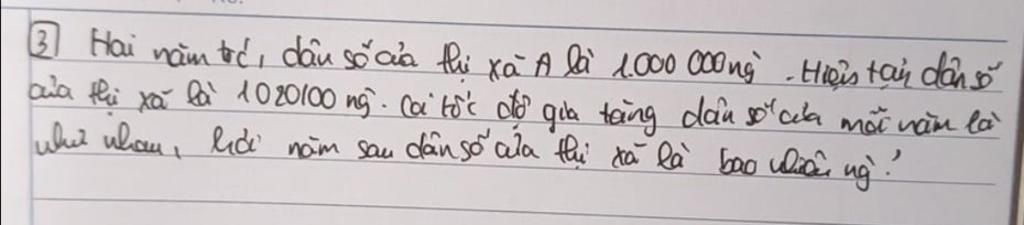 3 Hai năm trc, dân số của thị xã A là 1.000 000 ng. Hiện tại dân số
của thị xã là 1020100 ng. Coi tốc độ gia tăng dân số của mỗi năm là
như nhau, hỏi năm sau dân số của thị xã là bao nhiêu ng?